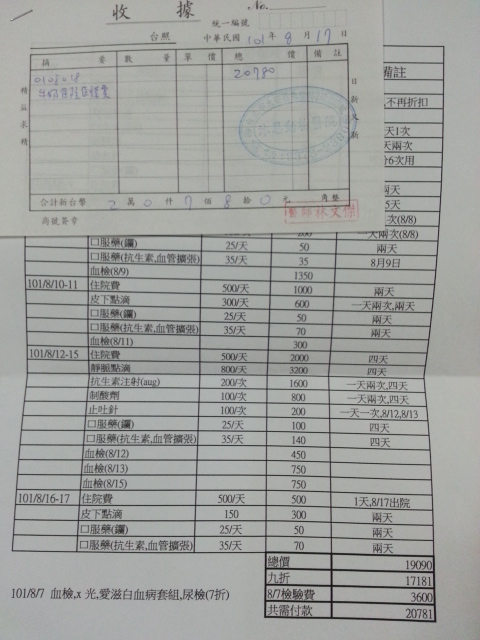 收 據
No.
統一編號
台照 中華民國 101 年 8 月 17 日
摘 要 數 量 單 價 總 價 備 註
0108018 20780
精益求精
日新又新
合計新台幣 2 萬 0 仟 7 佰 8 拾 0 元 角整
商號簽章
醫師林文傑
備註
不再折扣
天1次
天兩次
分6次用
兩天
5天
兩次(8/8)
200 一天兩次(8/8)
口服藥(鑭) 25/天 50 兩天
口服藥(抗生素,血管擴張) 35/天 35 8月9日
血檢(8/9) 1350
101/8/10-11 住院費 500/天 1000 兩天
皮下點滴 300/天 600 一天兩次,兩天
口服藥(鑭) 25/天 50 兩天
口服藥(抗生素,血管擴張) 35/天 70 兩天
血檢(8/11) 300
101/8/12-15 住院費 500/天 2000 四天
靜脈點滴 800/天 3200 四天
抗生素注射(aug) 200/次 1600 一天兩次,四天
制酸劑 100/次 800 一天兩次,四天
止吐針 100/次 200 一天一次,8/12,8/13
口服藥(鑭) 25/天 100 四天
口服藥(抗生素,血管擴張) 35/天 140 四天
血檢(8/12) 450
血檢(8/13) 750
血檢(8/15) 750
101/8/16-17 住院費 500/天 500 1天,8/17出院
皮下點滴 150 300 兩天
口服藥(鑭) 25/天 50 兩天
口服藥(抗生素,血管擴張) 35/天 70 兩天
總價 19090
九折 17181
101/8/7 血檢,x 光,愛滋白血病套組,尿檢(7折) 8/7檢驗費 3600
共需付款 20781